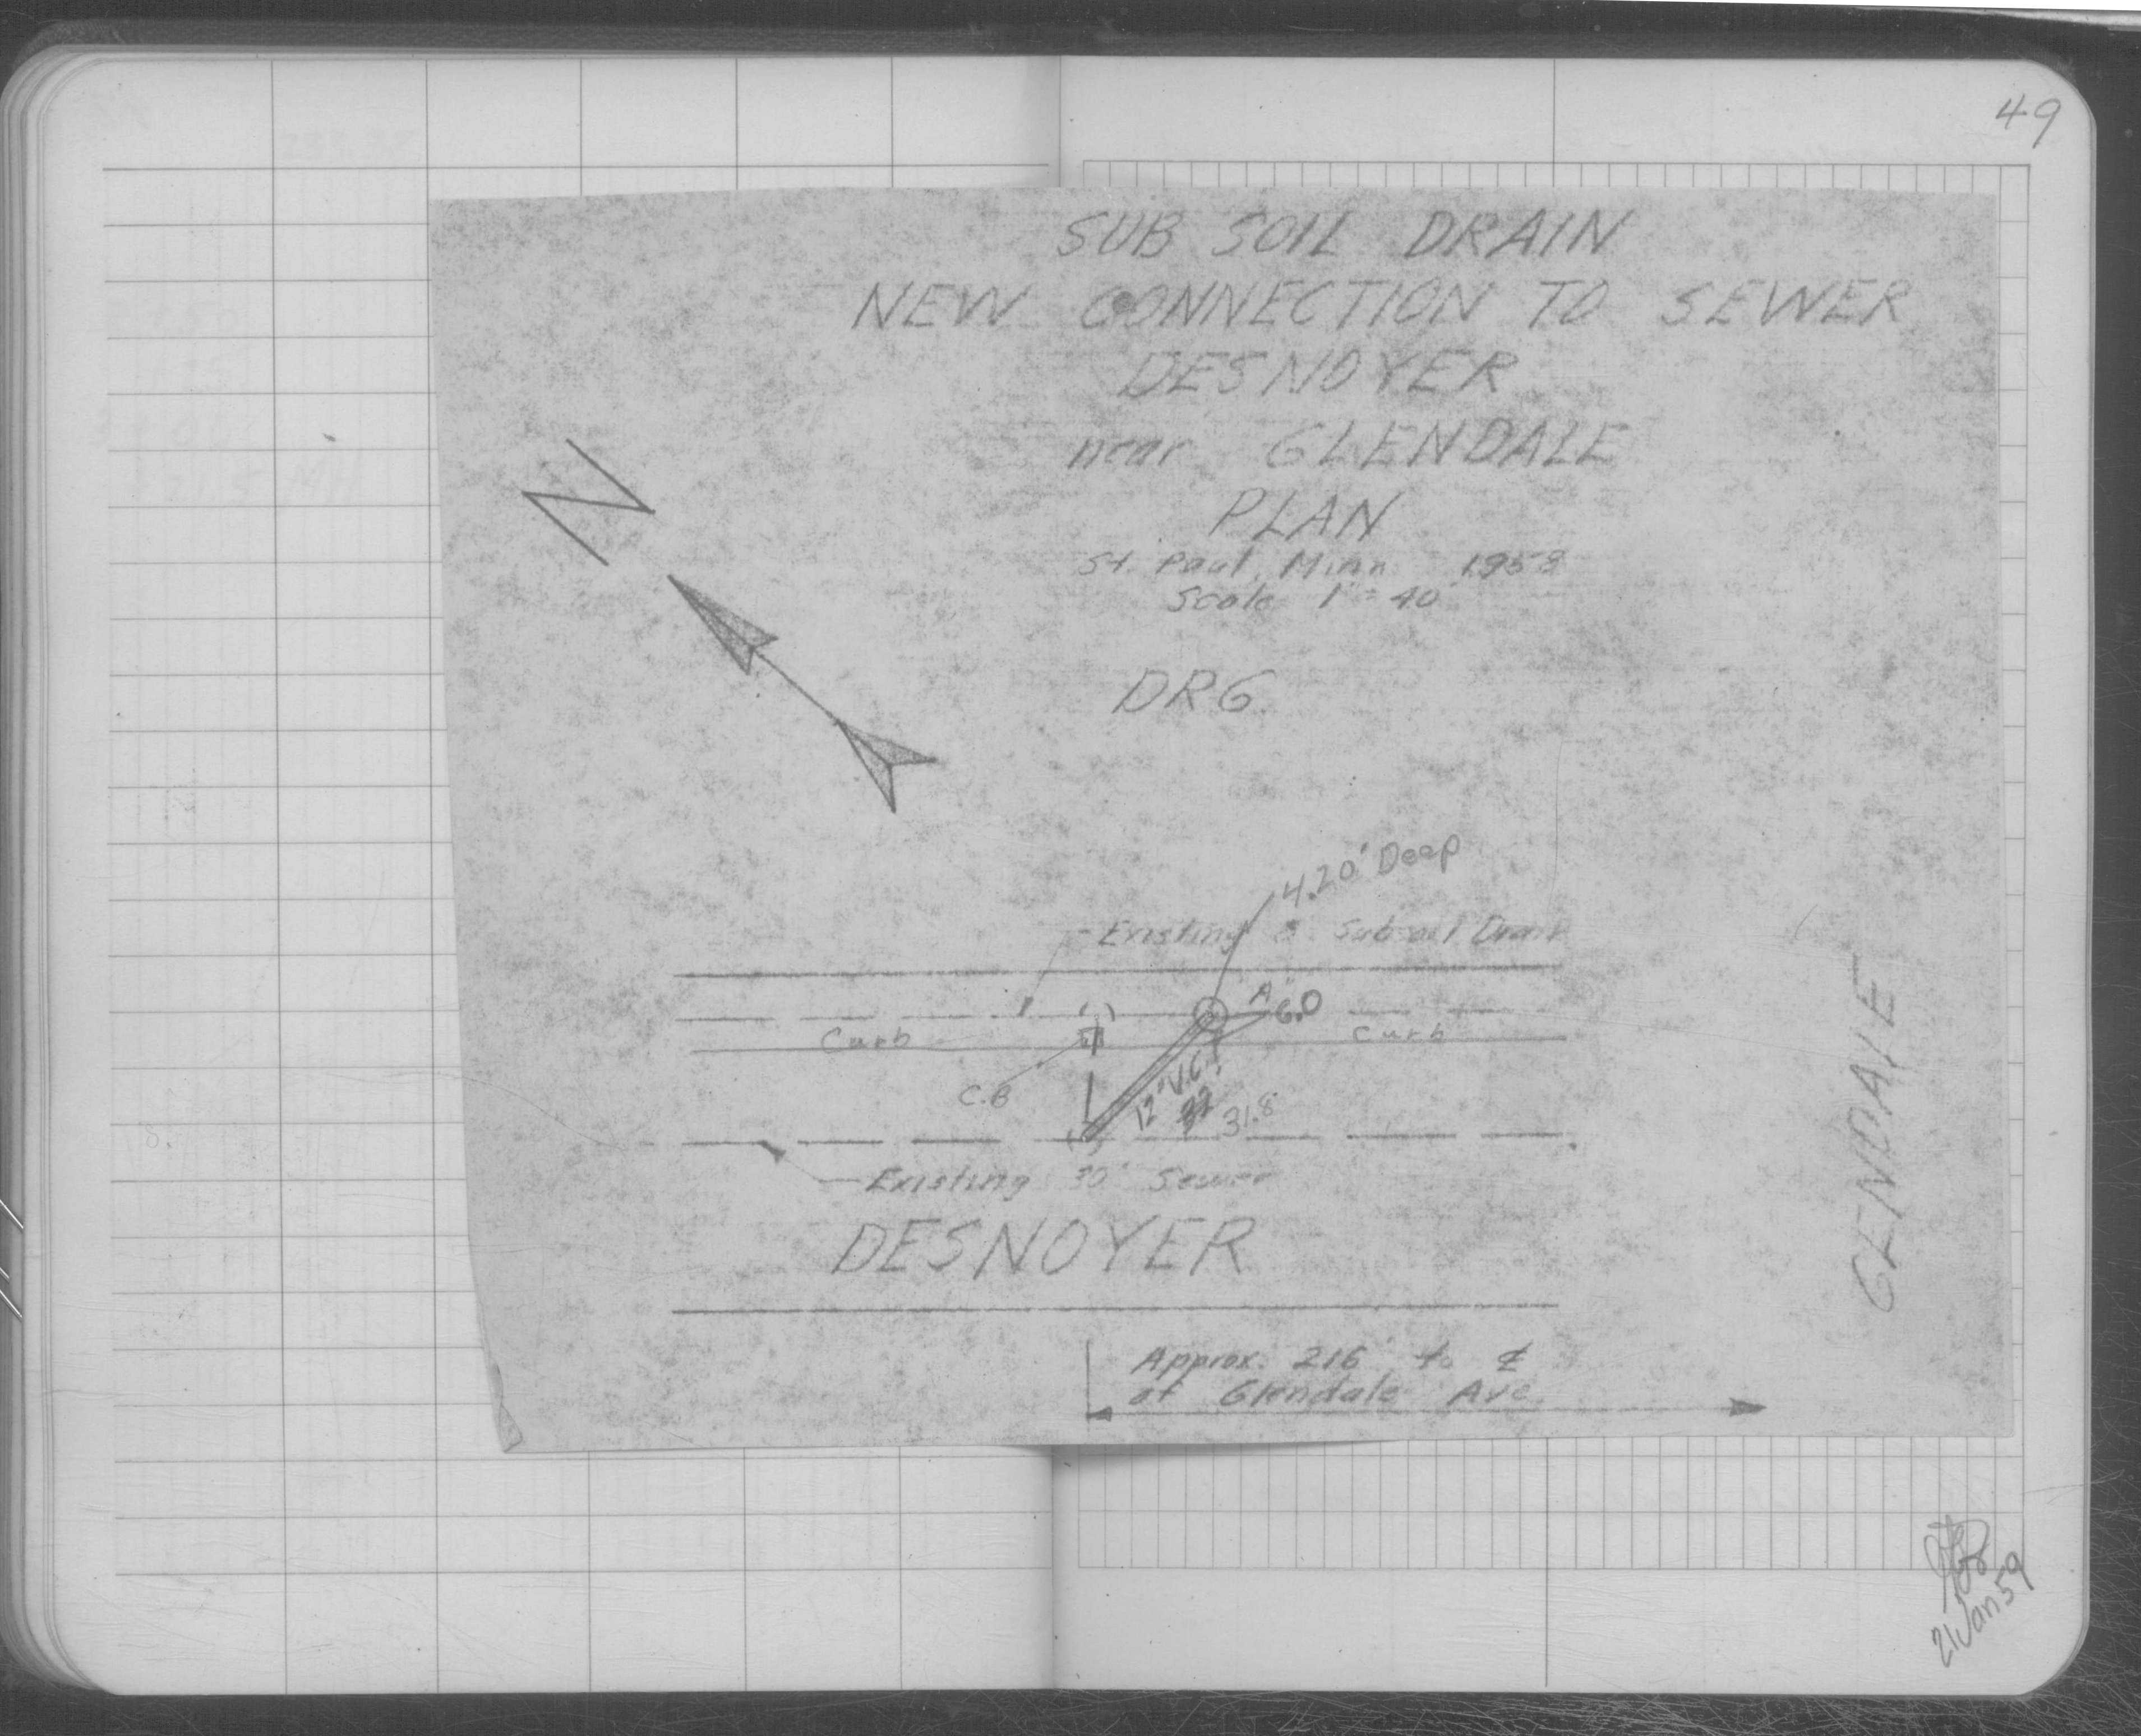 49
SUB SOIL DRAIN
NEW CONNECTION TO SEWER
DESNOYER
near GLENDALE
PLAN
St. Paul, Minn. 1958
Scale 1" = 40'
N
DRG.
4.20' Deep
Existing 8" Subsoil Drain
A
6.0
Curb
Curb
C.B
12" V.C.
31.8
Existing 30" Sewer
DESNOYER
GLENDALE
Approx. 216' to ℄
of Glendale Ave.
21 Jan 59